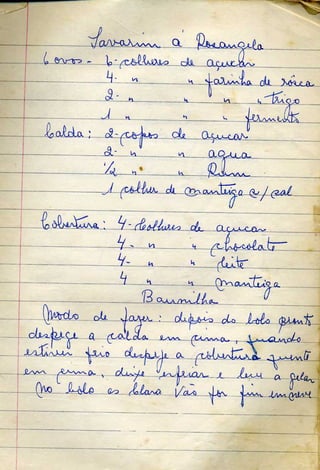 Savarim á Rosangela
6 ovos - 6 colheres de açucar
4 " " farinha de rosca
2 " " " " trigo
1 " " " fermento
Calda: 2 copos de açucar
2 " " agua
1/2 " " Rum
1 colher de manteiga c/ sal
Cobertura: 4 - Colheres de açucar
4 - " " chocolate
4 - " " leite
4 " " manteiga
Baunilha
Modo de fazer: depois do bolo pronto
despeje a calda em cima, quando
estiver frio despeje a cobertura quente
em cima, deixe esfriar e leve a gelar
No bolo as Clara Vão por fim em neve